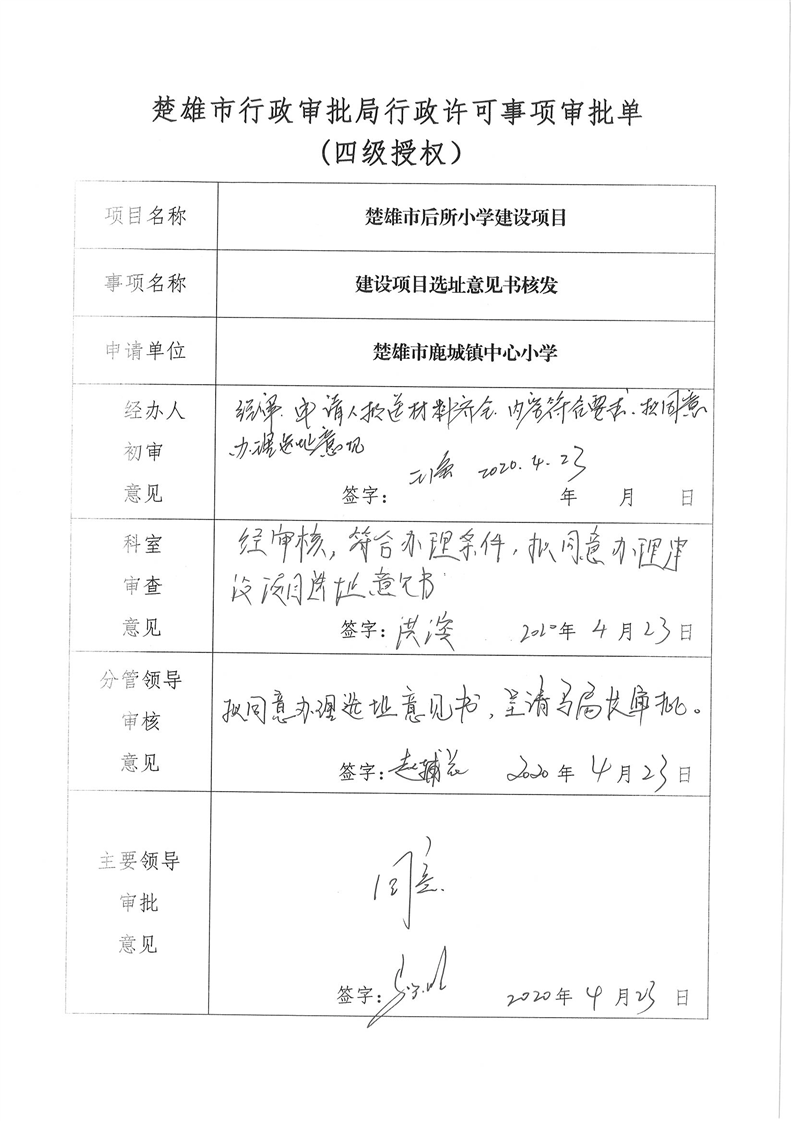 楚雄市行政审批局行政许可事项审批单
(四级授权)
项目名称 楚雄市后所小学建设项目
事项名称 建设项目选址意见书核发
申请单位 楚雄市鹿城镇中心小学
经办人
初审
意见
经审,申请人报送材料齐全,内容符合要求,拟同意
办理选址意见
签字: 2020.4.23
年 月 日
科室
审查
意见
经审核,符合办理条件,拟同意办理建
设项目选址意见书
签字:洪 2020年4月23日
分管领导
审核
意见
拟同意办理选址意见书,呈请马局长审批。
签字:赵 2020年4月23日
主要领导
审批
意见
同意.
签字: 2020年4月23日